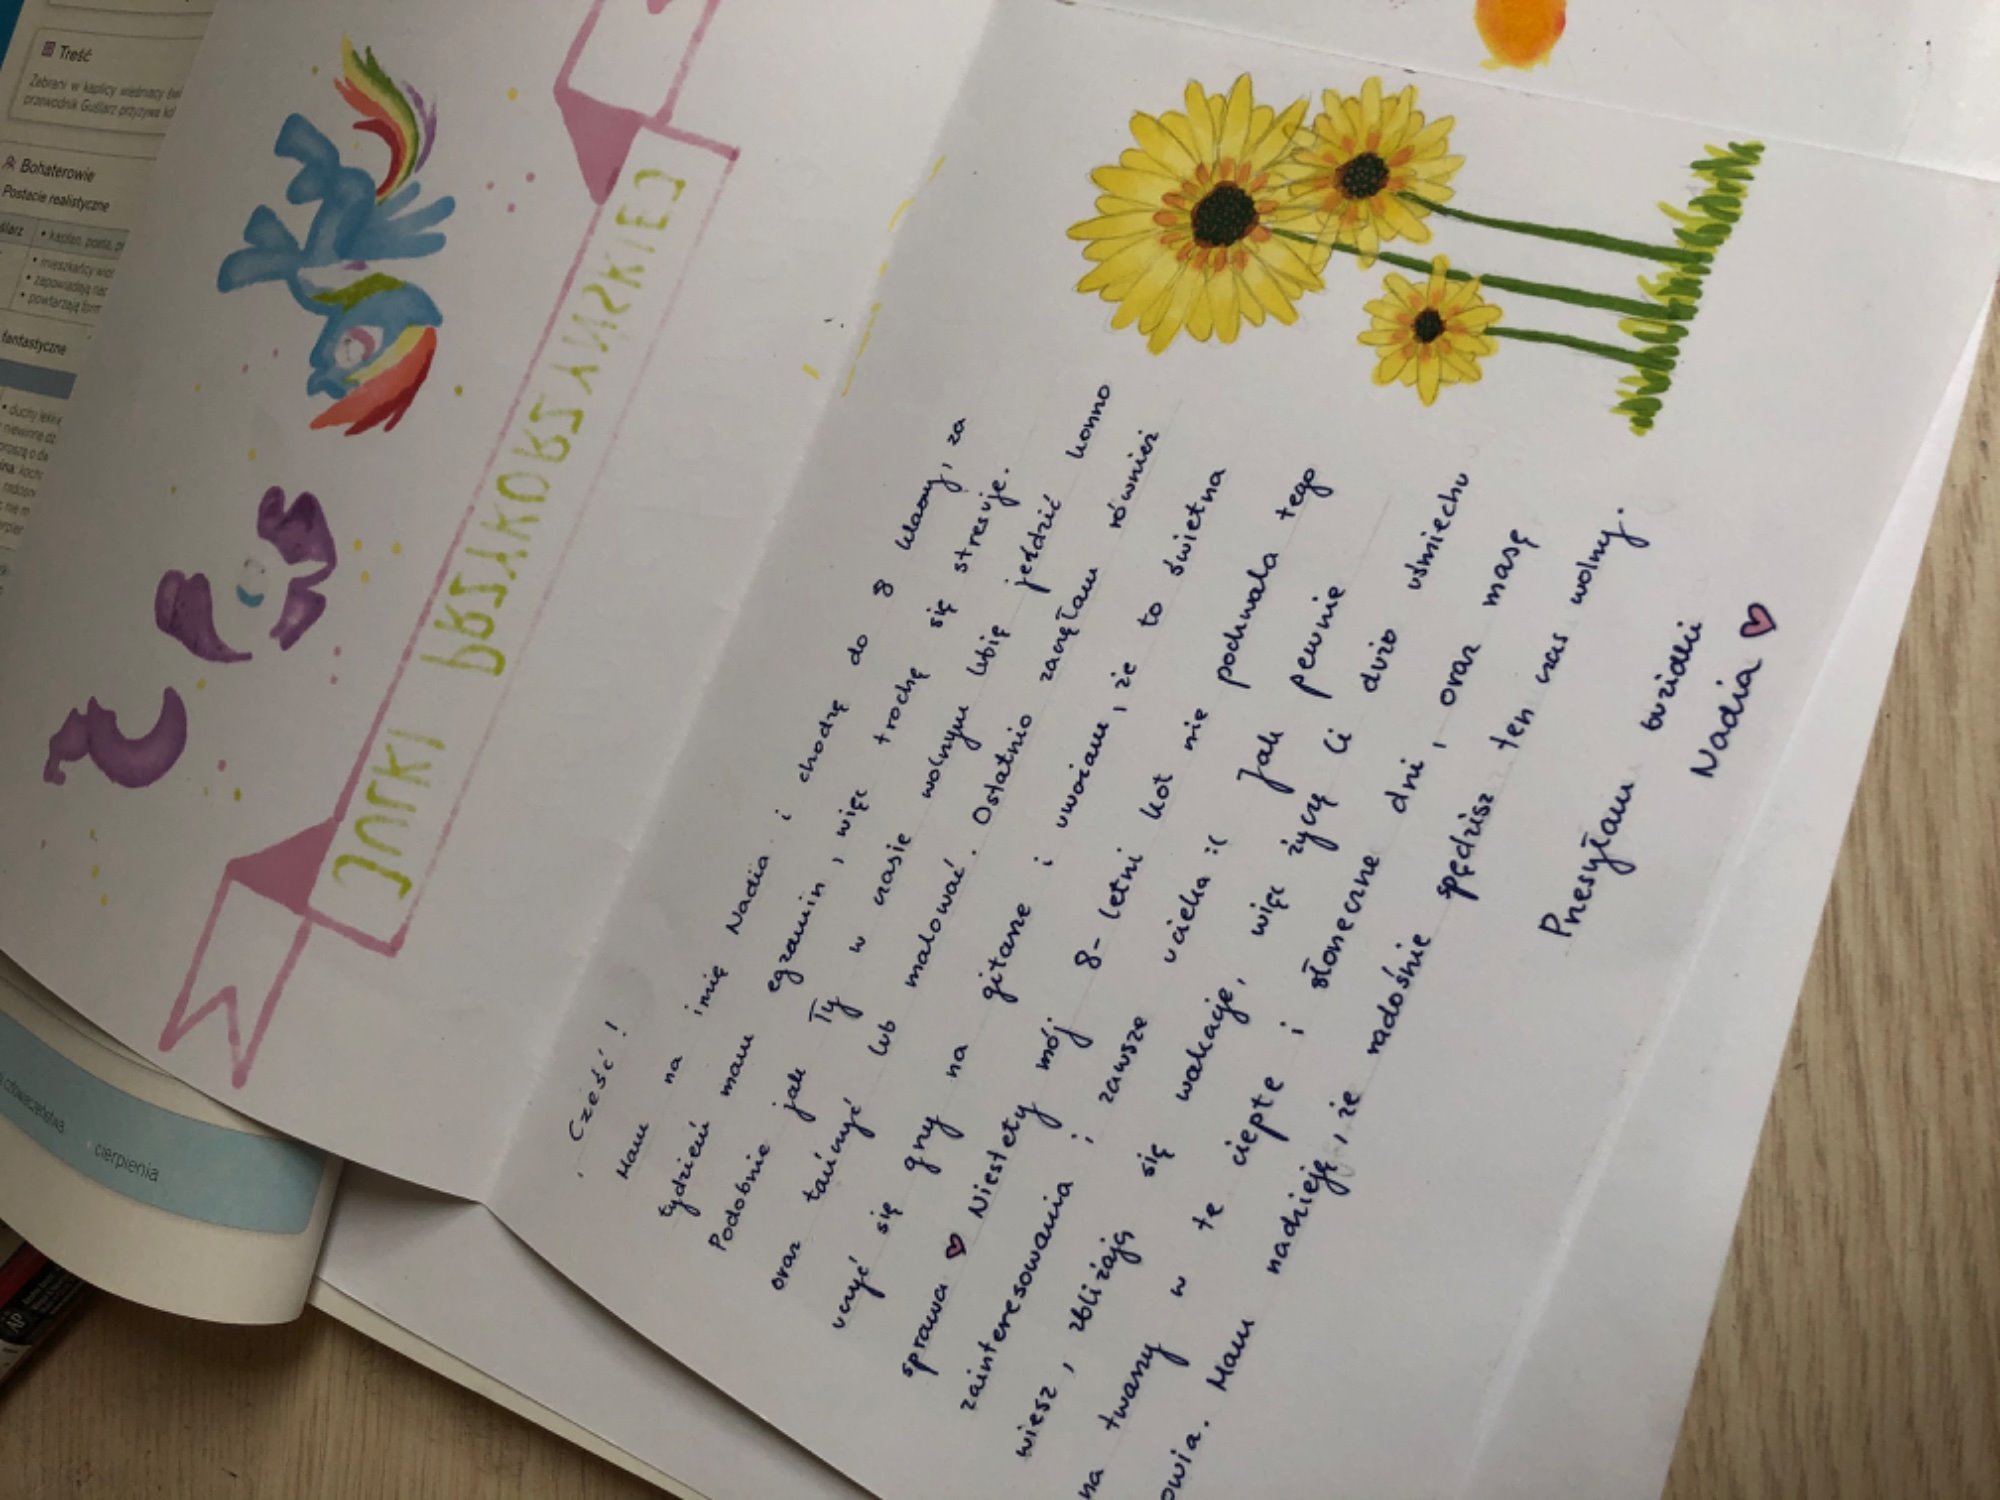 Treść
Zebrani w kaplicy wieśniacy
przewodnik Guślarz przyzywa
Bohaterowie
Postacie realistyczne
• kapłan, poeta,
• mieszkańcy
• zapowiadają
• powtarzają
fantastyczne
• duchy
niewinne
proszą o
cierpienia
JULKI PRZYKORZYNSKIEJ
Cześć!
Mam na imię Nadia i chodzę do 8 klasy, za
tydzień mam egzamin, więc trochę się stresuje.
Podobnie jak Ty w czasie wolnym lubię jeździć konno
oraz tańczyć lub malować. Ostatnio zaczęłam również
uczyć się gry na gitarze i uważam, że to świetna
sprawa ♥ Niestety mój 8-letni kot nie pochwala tego
zainteresowania i zawsze ucieka :( Jak pewnie
wiesz, zbliżają się wakacje, więc życzę Ci dużo uśmiechu
na twarzy w te ciepłe i słoneczne dni, oraz masę
owia. Mam nadzieję, że radośnie spędzisz ten czas wolny.
Przesyłam buziaki
Nadia ♥